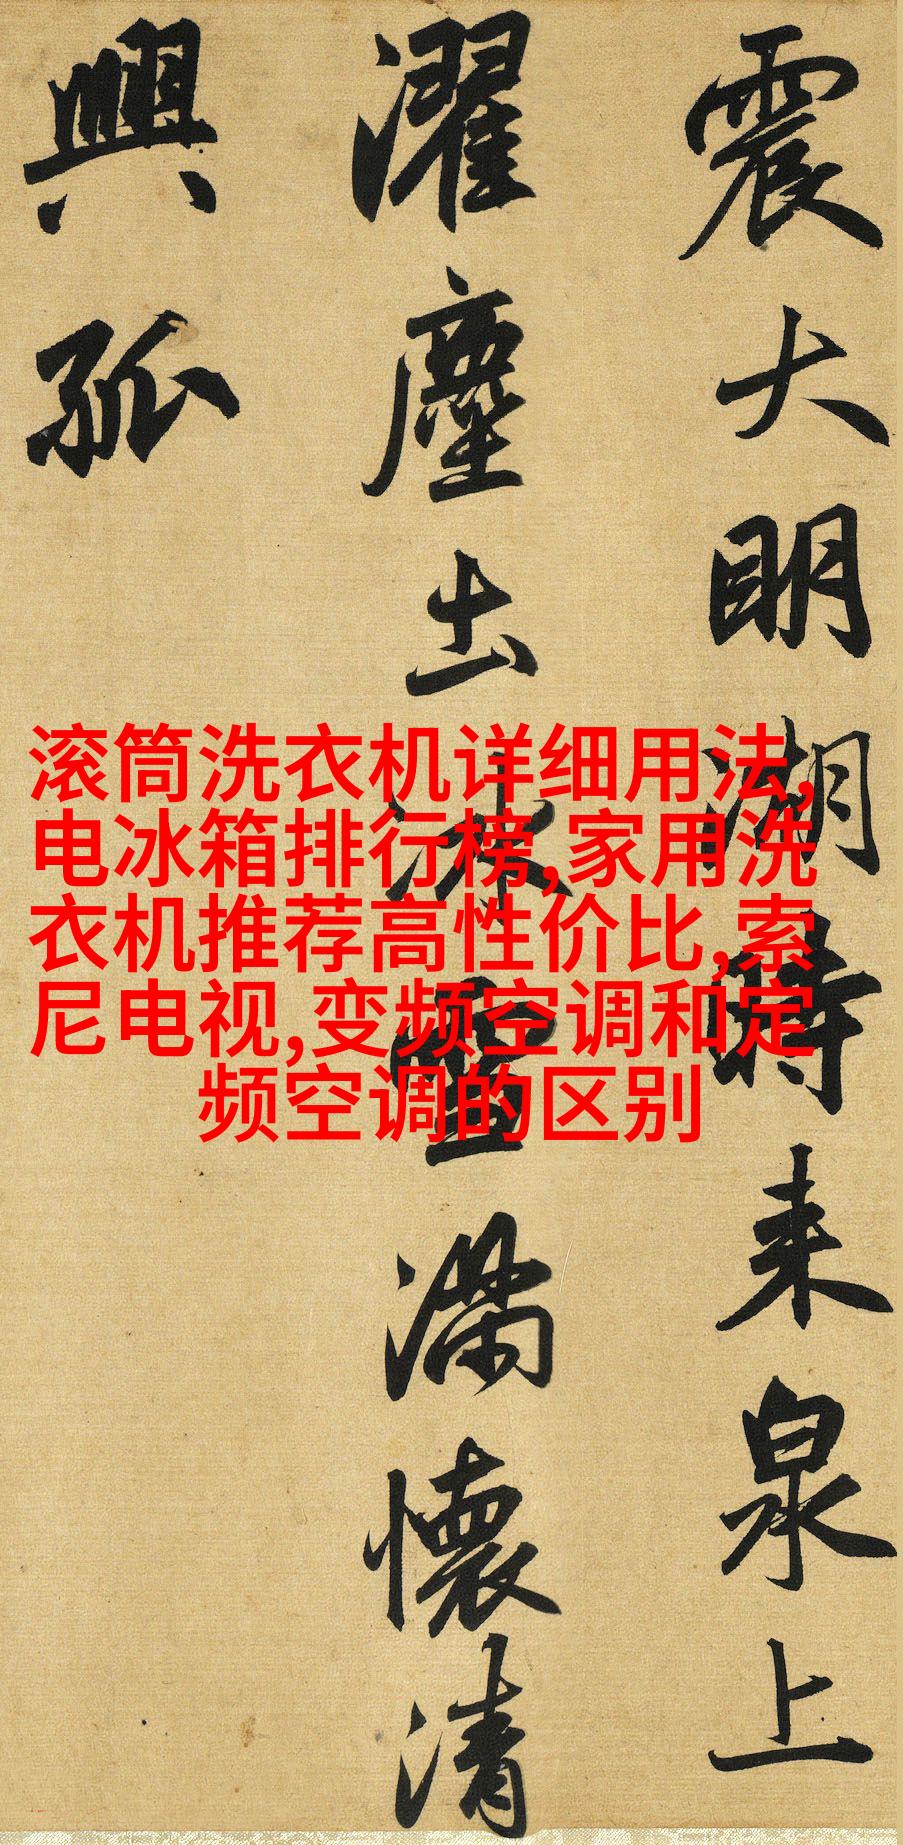 震大明湖時来泉上
濯塵土冰雪满懷清
興孤
滚筒洗衣机详细用法,
电冰箱排行榜,家用洗
衣机推荐高性价比,索
尼电视,变频空调和定
频空调的区别